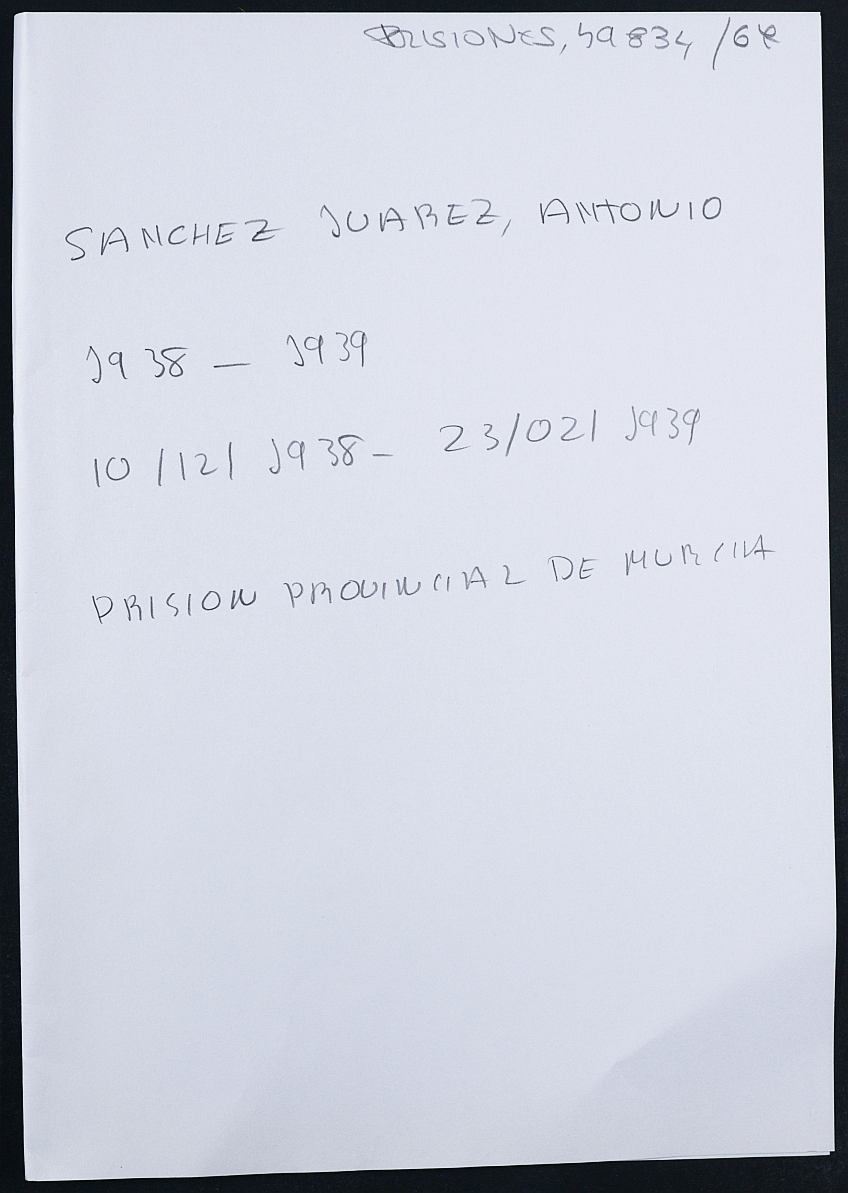 PRISIONES, 59834 /64
SANCHEZ JUAREZ, ANTONIO
1938 — 1939
10/12/1938 - 23/02/1939
PRISION PROVINCIAL DE MURCIA